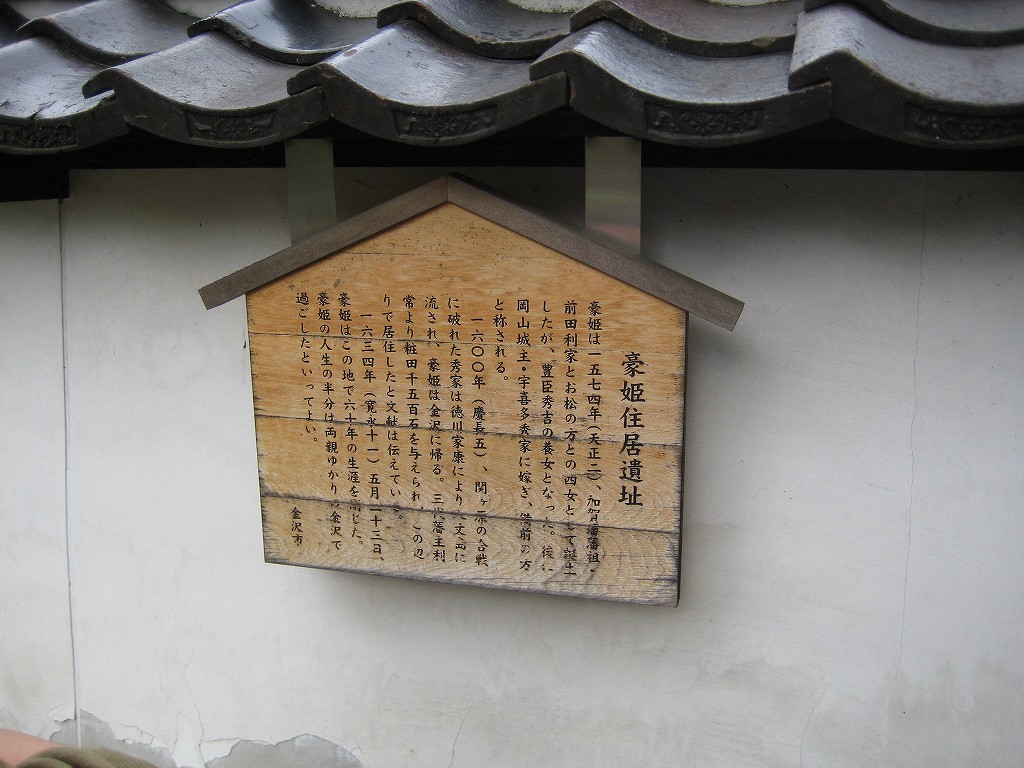 豪姫住居遺址
豪姫は一五七四年(天正二)、加賀藩藩祖・
前田利家とお松の方との四女として誕生
したが、豊臣秀吉の養女となった。後に
岡山城主・宇喜多秀家に嫁ぎ、備前の方
と称される。
一六〇〇年(慶長五)、関ヶ原の合戦
に破れた秀家は徳川家康により八丈島に
流され、豪姫は金沢に帰る。三代藩主利
常より粧田千五百石を与えられ、この辺
りで居住したと文献は伝えている。
一六三四年(寛永十一)五月二十三日、
豪姫はこの地で六十年の生涯を閉じた。
豪姫の人生の半分は両親ゆかりの金沢で
過ごしたといってよい。
金沢市